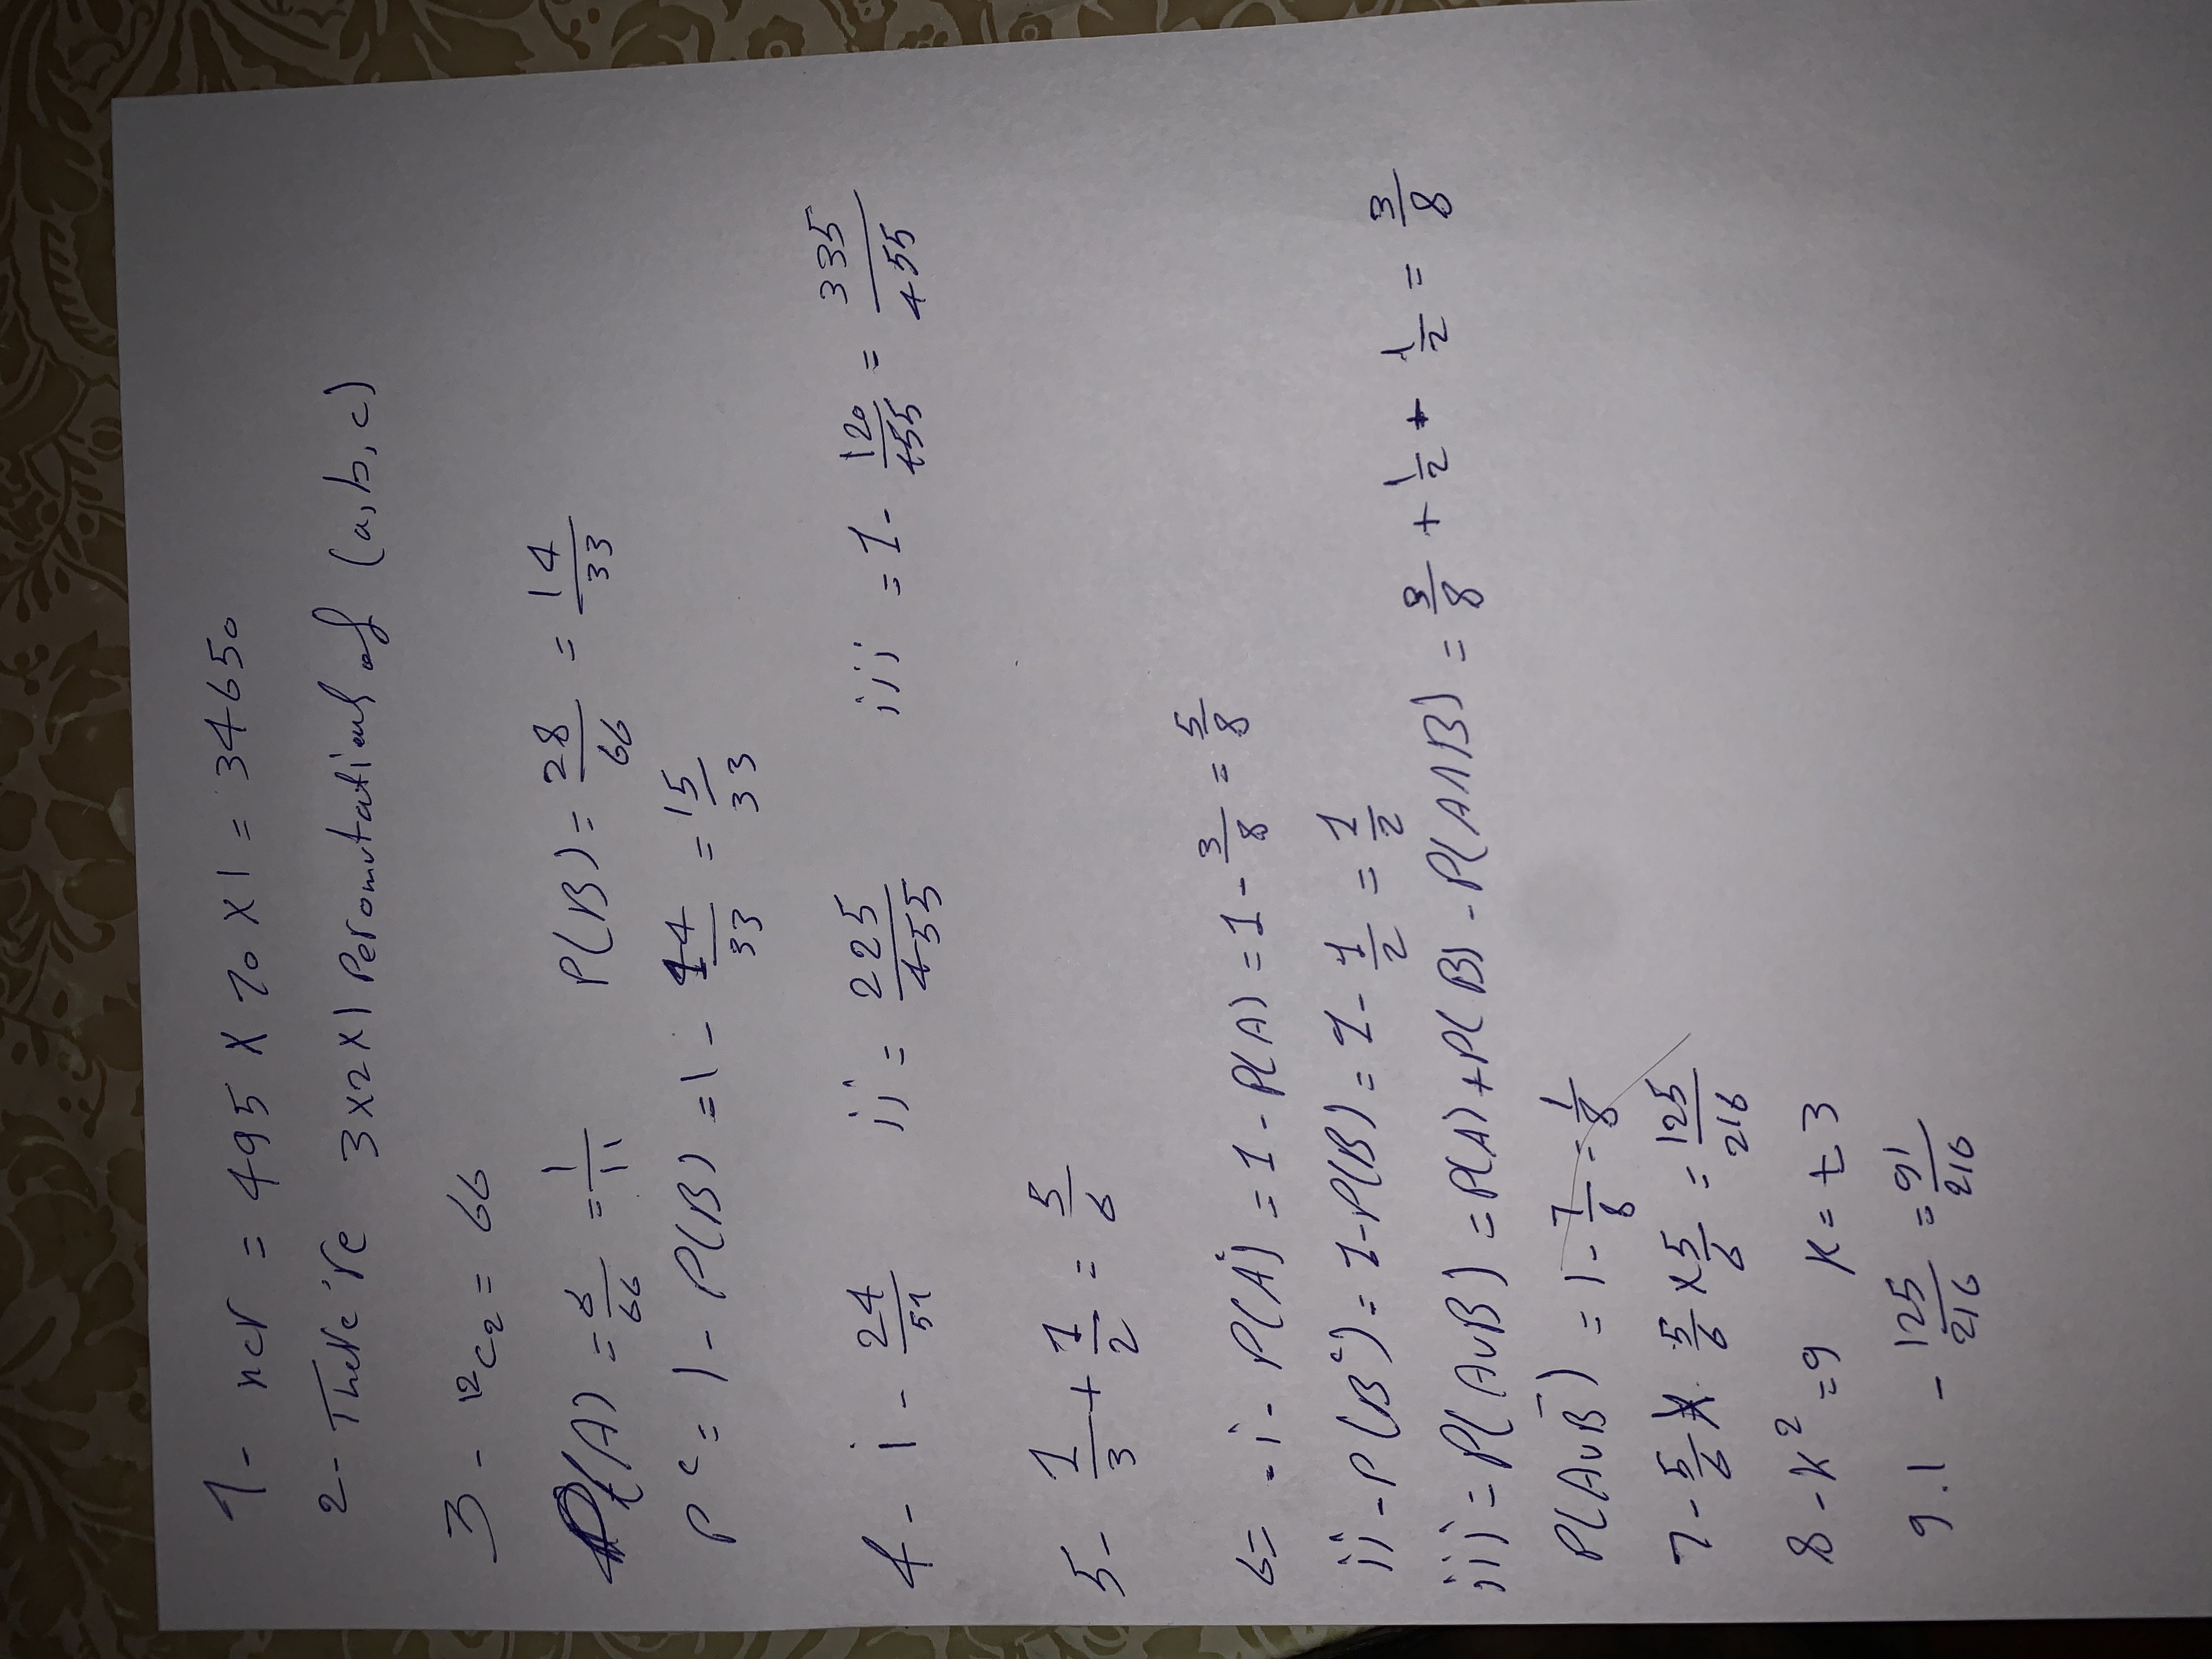 1- ncr = 495 X 70 X 1 = 34650
2- There're 3x2x1 Peromutations of (a, b, c)
3 - ¹²C₂ = 66
P(A) = 6/66 = 1/11 P(B) = 28/66 = 14/33
Pᶜ = 1 - P(B) = 1 - 14/33 = 15/33
4 - i - 24/51 ii = 225/455 iii = 1 - 120/455 = 335/455
5- 1/3 + 1/2 = 5/6
6= - i - P(Aᶜ) = 1 - P(A) = 1 - 3/8 = 5/8
ii - P(Bᶜ) = 1-P(B) = 1 - 1/2 = 1/2
iii = P(A∪B) = P(A) + P(B) - P(A∩B) = 3/8 + 1/2 + 1/2 = 3/8
P(A∪B̄) = 1 - 7/8 = 1/8
7 - 5/6 X 5/6 X 5/6 = 125/216
8 - K² = 9 K = ± 3
9.1 - 125/216 = 91/216